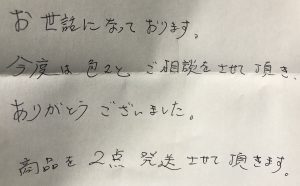 お世話になっております。
今度は色々と ご相談をさせて頂き、
ありがとう ございました。
商品を 2点 発送させて頂きます。